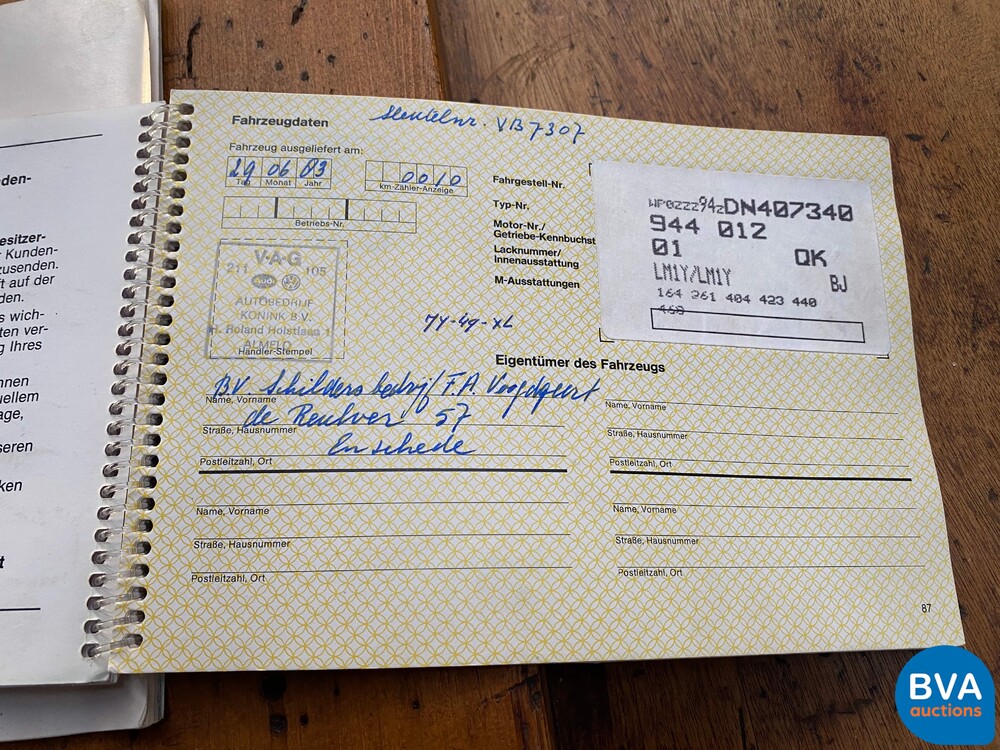 den-
esitzer-
r Kunden-
zusenden.
ft auf der
den.
s wich-
ten ver-
g Ihres
nnen
uellem
age,
seren
ken
t
Fahrzeugdaten
Sleutelnr. VB7307
Fahrzeug ausgeliefert am:
29 06 83
Tag Monat Jahr
0010
km-Zähler-Anzeige
Betriebs-Nr.
V·A·G
211 105
Audi
AUTOBEDRIJF
KONINK B.V.
H. Roland Holstlaan 1
ALMELO
Händler-Stempel
Fahrgestell-Nr.
Typ-Nr.
Motor-Nr./
Getriebe-Kennbuchst
Lacknummer/
Innenausstattung
M-Ausstattungen
WP0ZZZ94ZDN407340
944 012
01 QK
LM1Y/LM1Y BJ
164 261 404 423 440
468
74-49-XL
Eigentümer des Fahrzeugs
BV Schildersbedrijf F.A.
Name, Vorname
de Reulver 57
Straße, Hausnummer
Enschede
Postleitzahl, Ort
Name, Vorname
Straße, Hausnummer
Postleitzahl, Ort
Name, Vorname
Straße, Hausnummer
Postleitzahl, Ort
Name, Vorname
Straße, Hausnummer
Postleitzahl, Ort
87
BVA
auctions